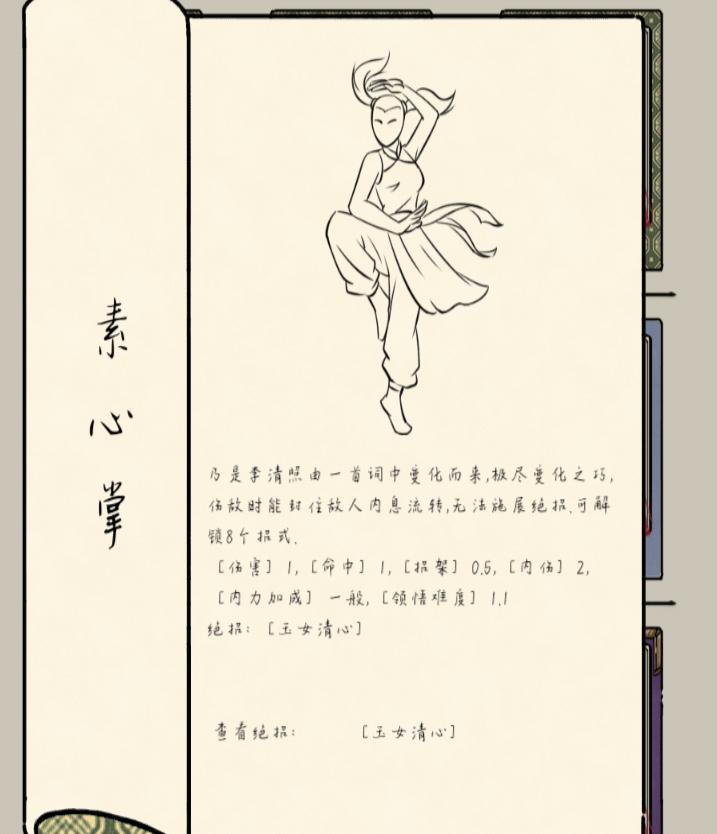 素心掌
乃是李清照由一首词中变化而来,极尽变化之巧,
伤敌时能封住敌人内息流转,无法施展绝招.可解
锁8个招式.
[伤害] 1, [命中] 1, [招架] 0.5, [内伤] 2,
[内力加成] 一般, [领悟难度] 1.1
绝招: [玉女清心]
查看绝招: [玉女清心]